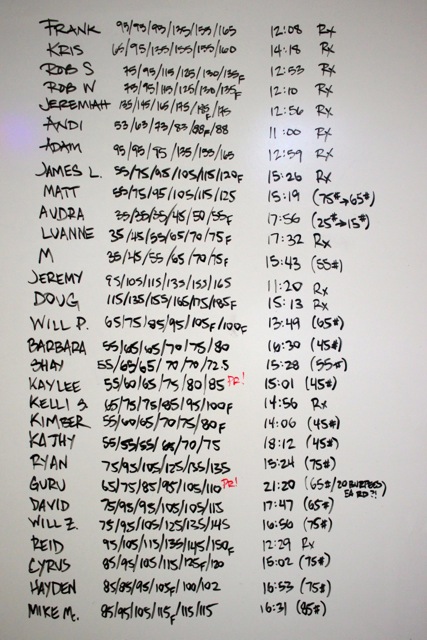 FRANK 95/95/95/135/155/165 12:08 Rx
KRIS 65/95/135/155/155/160 14:18 Rx
ROB S 75/95/115/125/130/135F 12:53 Rx
ROB W 75/95/115/125/130/135F 12:10 Rx
JEREMIAH 135/145/165/175/185F/175 12:56 Rx
ANDI 53/63/73/83/88F/88 11:00 Rx
ADAM 95/95/95/135/155/165 12:59 Rx
JAMES L. 55/75/95/105/115/120F 15:26 Rx
MATT 55/75/95/105/115/125 15:19 (75#→65#)
AUDRA 35/35/35/45/50/55F 17:56 (25#→15#)
LUANNE 35/45/55/65/70/75F 17:32 Rx
M 35/45/55/65/70/75F 15:43 (55#)
JEREMY 95/105/115/135/155/165 11:20 Rx
DOUG 115/135/155/165/175/185F 15:13 Rx
WILL P. 65/75/85/95/105F/100F 13:49 (65#)
BARBARA 55/65/65/70/75/80 16:30 (45#)
SHAY 55/65/65/70/70/72.5 15:28 (55#)
KAYLEE 55/60/65/75/80/85 PR! 15:01 (45#)
KELLI S 65/75/75/85/95/100F 14:56 Rx
KIMBER 55/60/65/70/75/80F 14:06 (45#)
KATHY 55/55/55/65/70/75 18:12 (45#)
RYAN 75/95/105/125/135/135 15:24 (75#)
GURU 65/75/85/95/105/110 PR! 21:20 (65#/20 BURPEES EA RD?!)
DAVID 75/95/95/105/105/115 17:47 (65#)
WILL Z. 75/95/105/125/135/145 16:56 (75#)
REID 95/105/115/135/145/150F 12:29 Rx
CYRUS 85/95/105/115/125F/120 15:02 (75#)
HAYDEN 85/85/95/105F/100/102 16:53 (75#)
MIKE M. 85/95/105/115F/115/115 16:31 (85#)